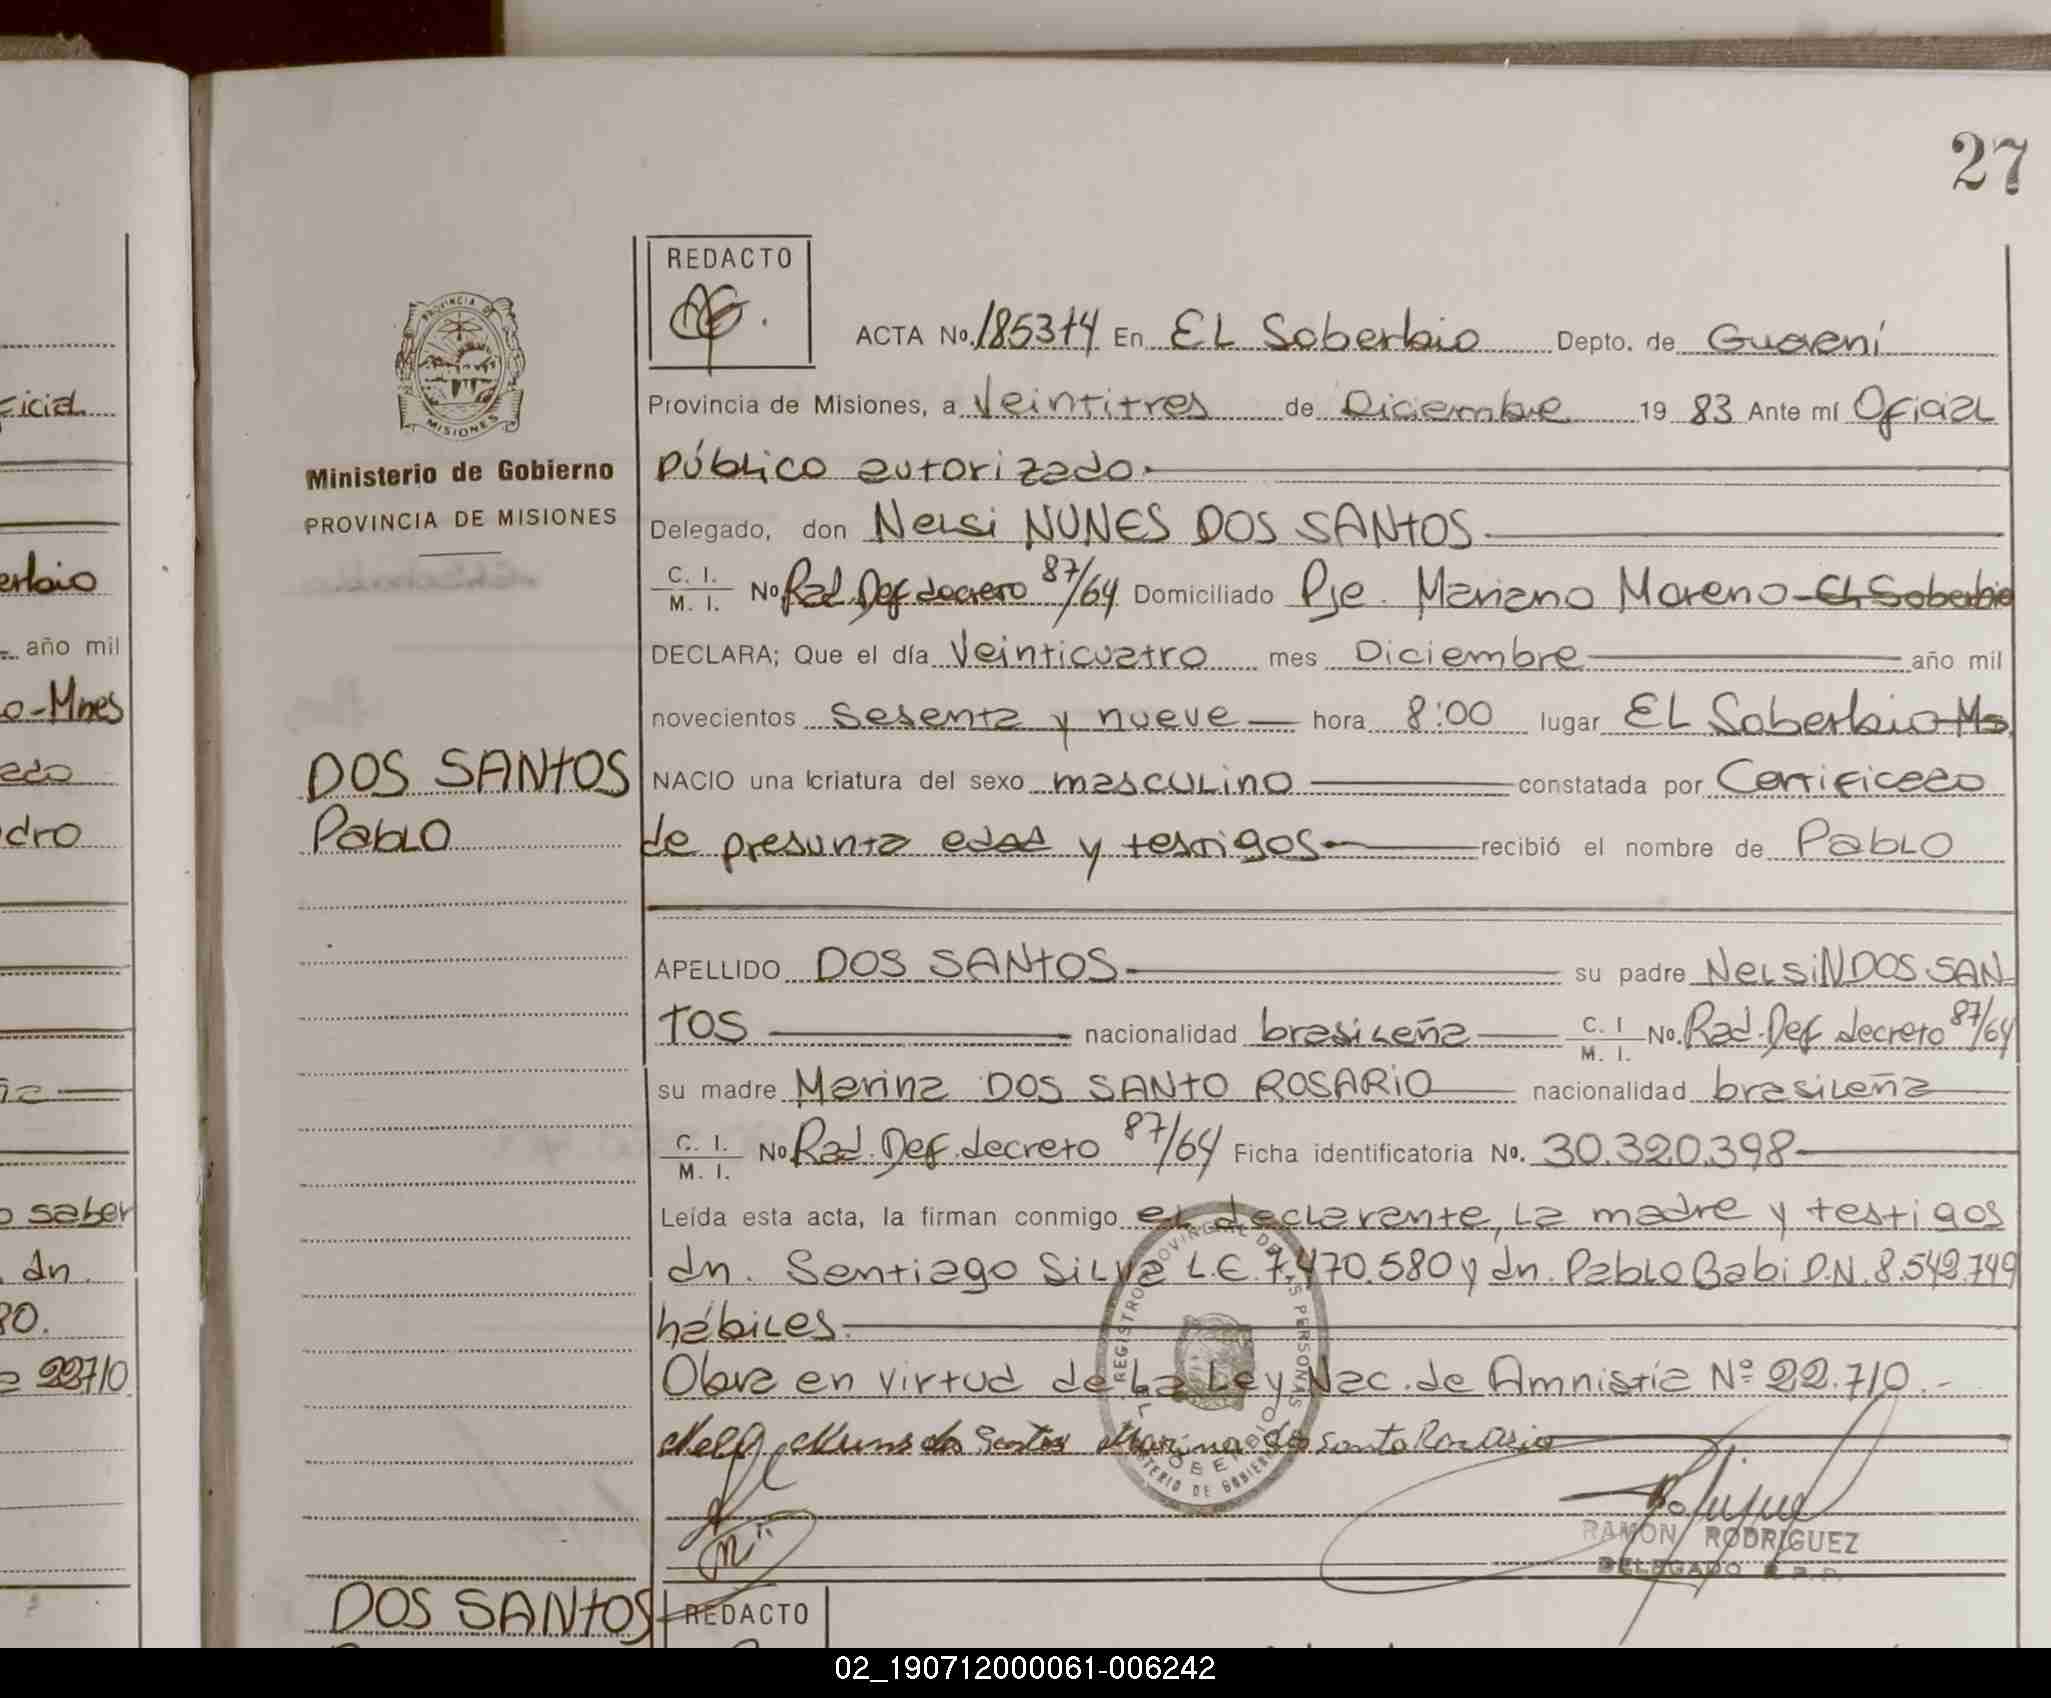 27
REDACTO
PROVINCIA DE
MISIONES
ACTA No. 185374 En EL Soberbio Depto. de Guarani
ficial
Provincia de Misiones, a Veintitres de Diciembre 19 83 Ante mí Oficial
Ministerio de Gobierno
público autorizado.
PROVINCIA DE MISIONES
Delegado, don Nelsi NUNES DOS SANTOS
erbio
C. I.
M. I. No Rad. Def. decreto 87/64 Domiciliado Pje. Mariano Moreno - EL Soberbio
año mil
DECLARA; Que el día Veinticuatro mes Diciembre año mil
o-Mnes
novecientos sesenta y nueve hora 8:00 lugar EL Soberbio-Ms.
DOS SANTOS
NACIO una criatura del sexo masculino constatada por Certificado
dro
PabLO
de presunta edad y testigos recibió el nombre de PabLO
APELLIDO DOS SANTOS su padre NeLSiNDOS SAN-
TOS nacionalidad brasileña C. I
M. I. No. Rad. Def. decreto 87/64
su madre Marina DOS SANTO ROSARIO nacionalidad brasileña
C. I.
M. I. No Rad. Def. decreto 87/64 Ficha identificatoria No. 30.320.398
o saber
Leída esta acta, la firman conmigo el declarante, la madre y testigos
dn.
dn. Santiago Silva L.E. 7.470.580 y dn. Pablo Babi D.N. 8.542.749
80.
hábiles.
a 22710
Obra en virtud de la Ley Nac. de Amnistía Nº 22.710.-
Nunes dos Santos Marina dos santo Rosario
REGISTRO PROVINCIAL DE LAS PERSONAS
MINISTERIO DE GOBIERNO
EL SOBERBIO
RAMON RODRIGUEZ
DELEGADO R.P.P.
DOS SANTOS
REDACTO
02_190712000061-006242